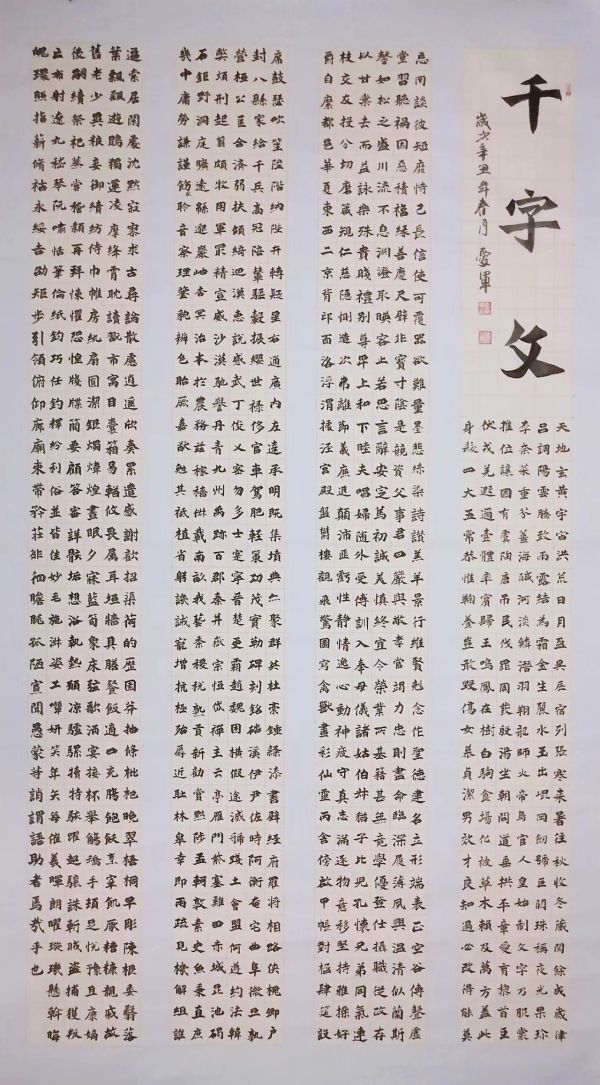 千字文
歲次辛丑年春月
愛軍
天地玄黃宇宙洪荒日月盈昃辰宿列張寒來暑往秋收冬藏閏餘成歲律
呂調陽雲騰致雨露結為霜金生麗水玉出崐岡劍號巨闕珠稱夜光果珍
李柰菜重芥薑海鹹河淡鱗潛羽翔龍師火帝鳥官人皇始制文字乃服裳
推位讓國有虞陶唐弔民伐罪周發殷湯坐朝問道垂拱平章愛育黎首臣
伏戎羌遐邇壹體率賓歸王鳴鳳在樹白駒食場化被草木賴及萬方蓋此
身髮四大五常恭惟鞠養豈敢毀傷女慕貞潔男效才良知過必改得能莫
忘罔談彼短靡恃己長信使可覆器欲難量墨悲絲染詩讚羔羊景行維賢剋念作聖德建名立形端表正空谷傳聲虛
堂習聽禍因惡積福緣善慶尺璧非寶寸陰是競資父事君曰嚴與敬孝當竭力忠則盡命臨深履薄夙興溫凊似蘭斯
馨如松之盛川流不息淵澄取映容止若思言辭安定篤初誠美慎終宜令榮業所基籍甚無竟學優登仕攝職從政存
以甘棠去而益詠樂殊貴賤禮別尊卑上和下睦夫唱婦隨外受傅訓入奉母儀諸姑伯叔猶子比兒孔懷兄弟同氣連
枝交友投分切磨箴規仁慈隱惻造次弗離節義廉退顛沛匪虧性靜情逸心動神疲守真志滿逐物意移堅持雅操好
爵自縻都邑華夏東西二京背邙面洛浮渭據涇宮殿盤鬱樓觀飛驚圖寫禽獸畫彩仙靈丙舍傍啟甲帳對楹肆筵設
席鼓瑟吹笙陞階納陛弁轉疑星右通廣內左達承明既集墳典亦聚群英杜稾鍾隸漆書壁經府羅將相路俠槐卿戶
封八縣家給千兵高冠陪輦驅轂振纓世祿侈富車駕肥輕策功茂實勒碑刻銘磻溪伊尹佐時阿衡奄宅曲阜微旦孰
營桓公匡合濟弱扶傾綺迴漢惠說感武丁俊乂密勿多士寔寧晉楚更霸趙魏困橫假途滅虢踐土會盟何遵約法韓
弊煩刑起翦頗牧用軍最精宣威沙漠馳譽丹青九州禹跡百郡秦并嶽宗恒岱禪主云亭雁門紫塞雞田赤城昆池碣
石鉅野洞庭曠遠綿邈巖岫杳冥治本於農務茲稼穡俶載南畝我藝黍稷稅熟貢新勸賞黜陟孟軻敦素史魚秉直庶
幾中庸勞謙謹敕聆音察理鑒貌辨色貽厥嘉猷勉其祗植省躬譏誡寵增抗極殆辱近恥林皋幸即兩疏見機解組誰
逼索居閑處沈默寂寥求古尋論散慮逍遙欣奏累遣慼謝歡招渠荷的歷園莽抽條枇杷晚翠梧桐早彫陳根委翳落
葉飄颻遊鵾獨運凌摩絳霄耽讀翫市寓目囊箱易輶攸畏屬耳垣牆具膳餐飯適口充腸飽飫烹宰飢厭糟糠親戚故
舊老少異糧妾御績紡侍巾帷房紈扇圓潔銀燭煒煌晝眠夕寐藍筍象床弦歌酒宴接杯舉觴矯手頓足悅豫且康嫡
後嗣續祭祀蒸嘗稽顙再拜悚懼恐惶牋牒簡要顧答審詳骸垢想浴執熱願涼驢騾犢特駭躍超驤誅斬賊盜捕獲叛
亡布射遼丸嵇琴阮嘯恬筆倫紙鈞巧任釣釋紛利俗並皆佳妙毛施淑姿工顰妍笑年矢每催曦暉朗曜璇璣懸斡晦
魄環照指薪修祜永綏吉劭矩步引領俯仰廊廟束帶矜莊徘徊瞻眺孤陋寡聞愚蒙等誚謂語助者焉哉乎也